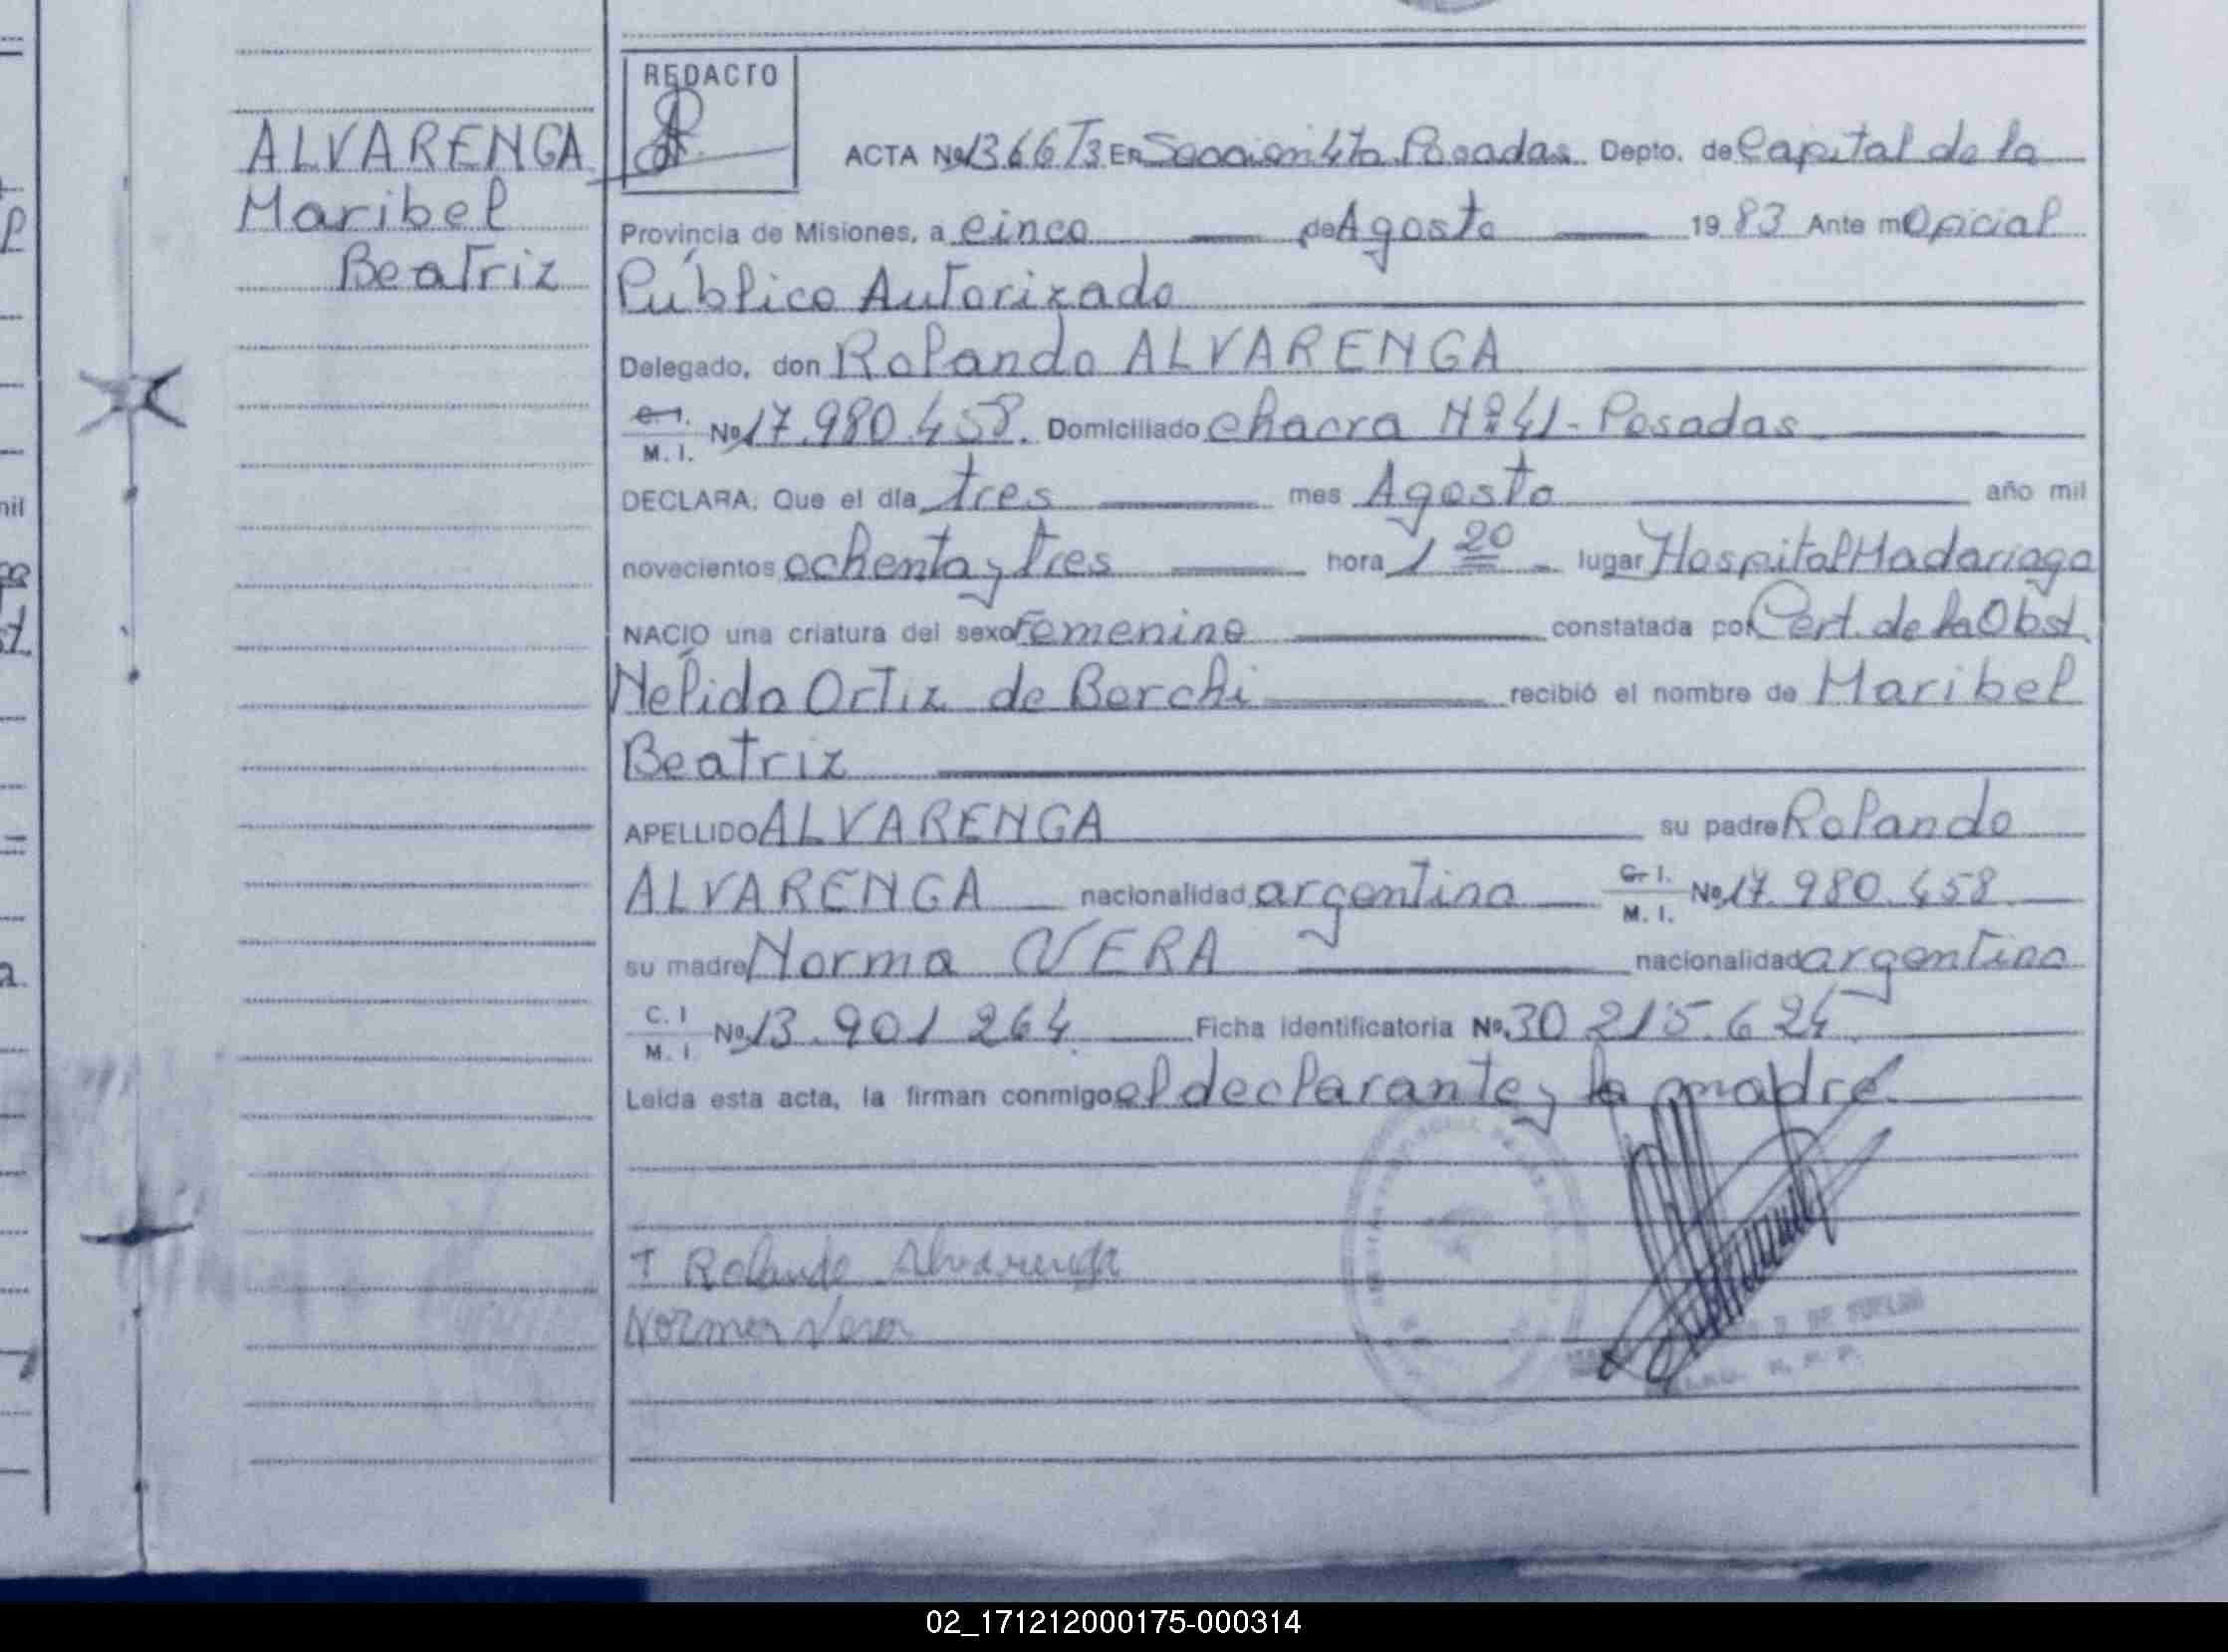 REDACTO
ALVARENGA
Maribel
Beatriz
ACTA Nº 1366 T3 En Sección 4ta Posadas Depto. de Capital de la
Provincia de Misiones, a cinco de Agosto 1983 Ante mi Oficial
Público Autorizado
Delegado, don Rolando ALVARENGA
C. I. M. I. Nº 17.980.458. Domiciliado chacra Nº 41 - Posadas
DECLARA: Que el día tres mes Agosto año mil
novecientos ochenta y tres hora 1 20 lugar Hospital Madariaga
NACIO una criatura del sexo Femenino constatada por Cert. de la Obst.
Nélida Ortiz de Borchi recibió el nombre de Maribel
Beatriz
APELLIDO ALVARENGA su padre Rolando
ALVARENGA nacionalidad argentina C. I. M. I. Nº 17.980.458
su madre Norma VERA nacionalidad argentina
C. I M. I Nº 13.901.264 Ficha identificatoria Nº 30 215.624
Leida esta acta, la firman conmigo el declarante y la madre
Rolando Alvarenga
Norma Vera
02_171212000175-000314